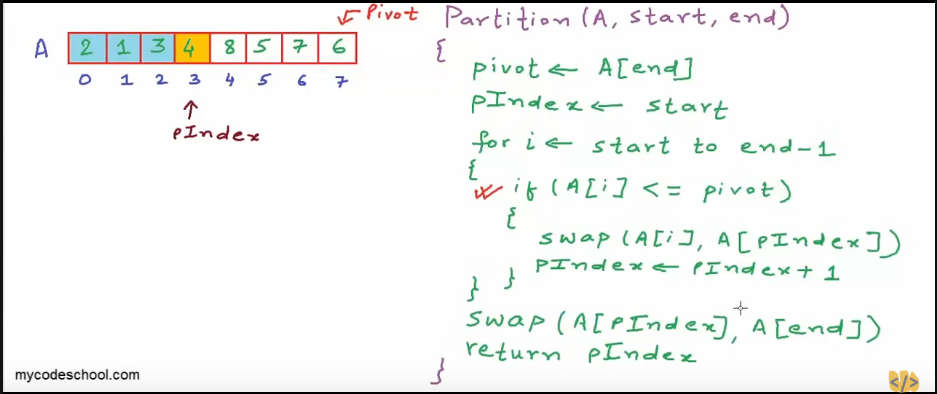 Pivot
A 2 1 3 4 8 5 7 6
0 1 2 3 4 5 6 7
pIndex
Partition (A, start, end)
{
pivot ← A[end]
pIndex ← start
for i ← start to end-1
{
if (A[i] <= pivot)
{
swap (A[i], A[pIndex])
pIndex ← pIndex + 1
} }
swap (A[pIndex], A[end])
return pIndex
}
mycodeschool.com
</>